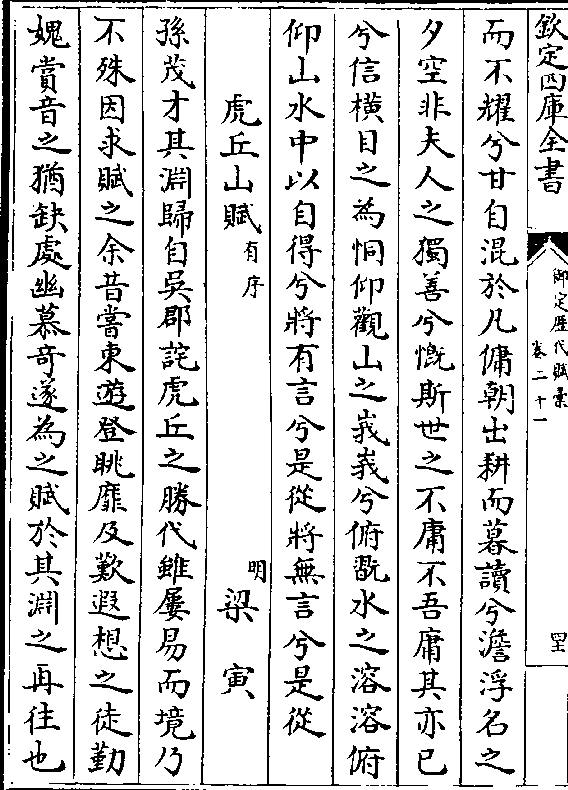 欽定四庫全書
御定歷代賦彙
卷二十一
而不耀兮甘自混於凡傭朝出耕而暮讀兮澹浮名之
夕空非夫人之獨善兮慨斯世之不庸不吾庸其亦已
兮信横目之為恫仰觀山之峩峩兮俯翫水之溶溶俯
仰山水中以自得兮將有言兮是從將無言兮是從
虎丘山賦有序
明
梁寅
孫茂才其淵歸自吳郡詫虎丘之勝代雖屢易而境乃
不殊因求賦之余昔嘗東遊登眺靡及歎遐想之徒勤
媿賞音之猶缺處幽慕奇遂為之賦於其淵之再往也